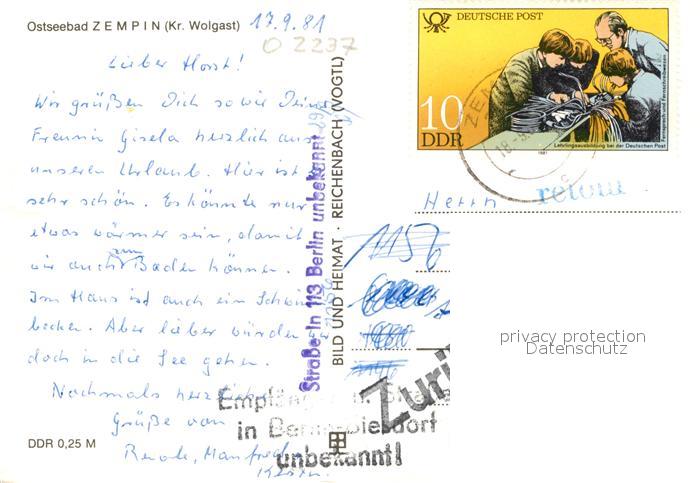 Ostseebad ZEMPIN (Kr. Wolgast) 17.9.81
O 2237
Lieber Horst!
Wir grüßen Dich sowie Deine
Freunin Gisela herzlich aus
unseren Urlaub. Hier ist es
sehr schön. Es könnte nur
etwas wärmer sein, damit
wir auch zum Baden können.
Im Haus ist auch ein Schwim
becken. Aber lieber würden wir
doch in die See gehen.
Nochmals herzliche
Grüße von
Renate, Manfred
Kerstin
DDR 0,25 M
BILD UND HEIMAT · REICHENBACH (VOGTL)
Straße in 113 Berlin unbekannt
DEUTSCHE POST
10
DDR
Lehrlingsausbildung bei der Deutschen Post
Fernsprech- und Fernschreibwesen
1981
ZEM
18.
Herrn
retour
1156
Zurü
Empfänger in Straße
in Berlin-Biesdorf
unbekannt!
privacy protection
Datenschutz